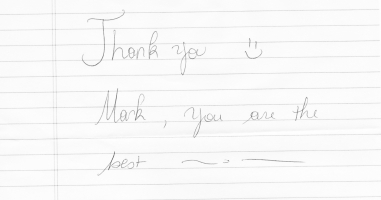 Thank you :)
Mark, you are the
best